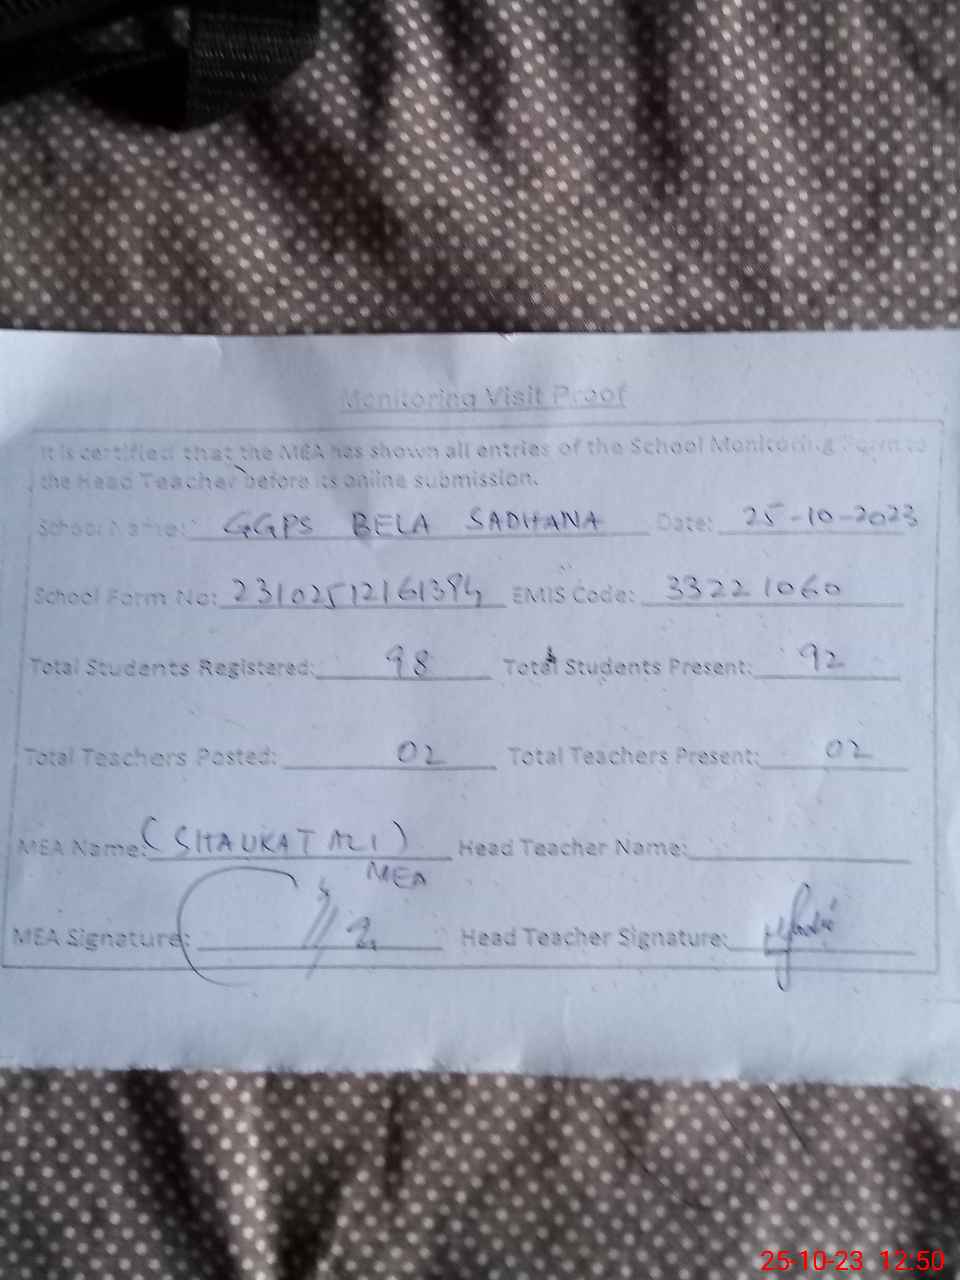 Monitoring Visit Proof
It is certified that the MEA has shown all entries of the School Monitoring Form to
the Head Teacher before its online submission.
School Name: GGPS BELA SADHANA Date: 25-10-2023
School Form No: 23102512161394 EMIS Code: 33221060
Total Students Registered: 98 Total Students Present: 92
Total Teachers Posted: 02 Total Teachers Present: 02
MEA Name: (SHAUKAT ALI) Head Teacher Name:
MEA
MEA Signature: Head Teacher Signature:
25-10-23 12:50